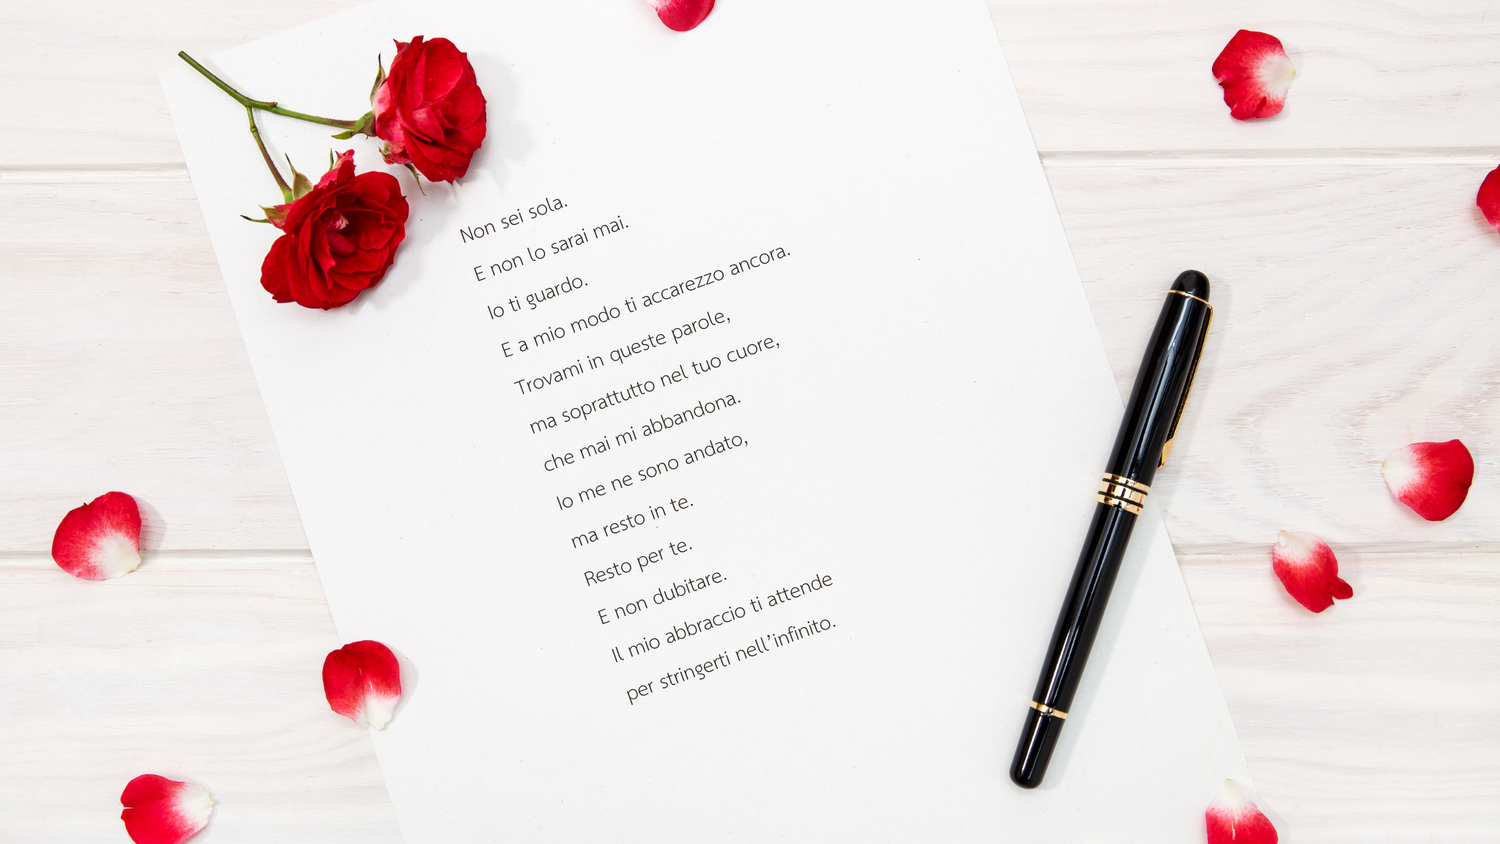 Non sei sola.
E non lo sarai mai.
Io ti guardo.
E a mio modo ti accarezzo ancora.
Trovami in queste parole,
ma soprattutto nel tuo cuore,
che mai mi abbandona.
Io me ne sono andato,
ma resto in te.
Resto per te.
E non dubitare.
Il mio abbraccio ti attende
per stringerti nell'infinito.